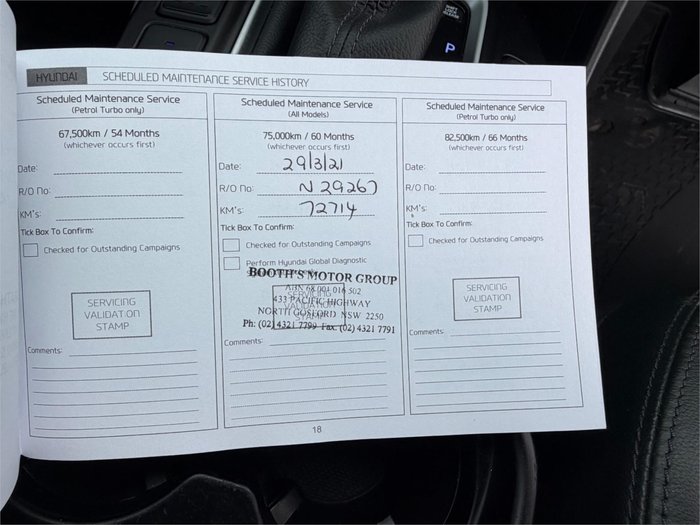 P
HYUNDAI SCHEDULED MAINTENANCE SERVICE HISTORY
Scheduled Maintenance Service
(Petrol Turbo only)
67,500km / 54 Months
(whichever occurs first)
Date:
R/O No:
KM's:
Tick Box To Confirm:
Checked for Outstanding Campaigns
SERVICING
VALIDATION
STAMP
Comments:
Scheduled Maintenance Service
(All Models)
75,000km / 60 Months
(whichever occurs first)
Date: 29/3/21
R/O No: N 29267
KM's: 72714
Tick Box To Confirm:
Checked for Outstanding Campaigns
Perform Hyundai Global Diagnostic
BOOTH'S MOTOR GROUP
ABN 68 001 016 502
433 PACIFIC HIGHWAY
NORTH GOSFORD NSW 2250
Ph: (02) 4321 7799 Fax: (02) 4321 7791
SERVICING
VALIDATION
STAMP
Comments:
Scheduled Maintenance Service
(Petrol Turbo only)
82,500km / 66 Months
(whichever occurs first)
Date:
R/O No:
KM's:
Tick Box To Confirm:
Checked for Outstanding Campaigns
SERVICING
VALIDATION
STAMP
Comments:
18